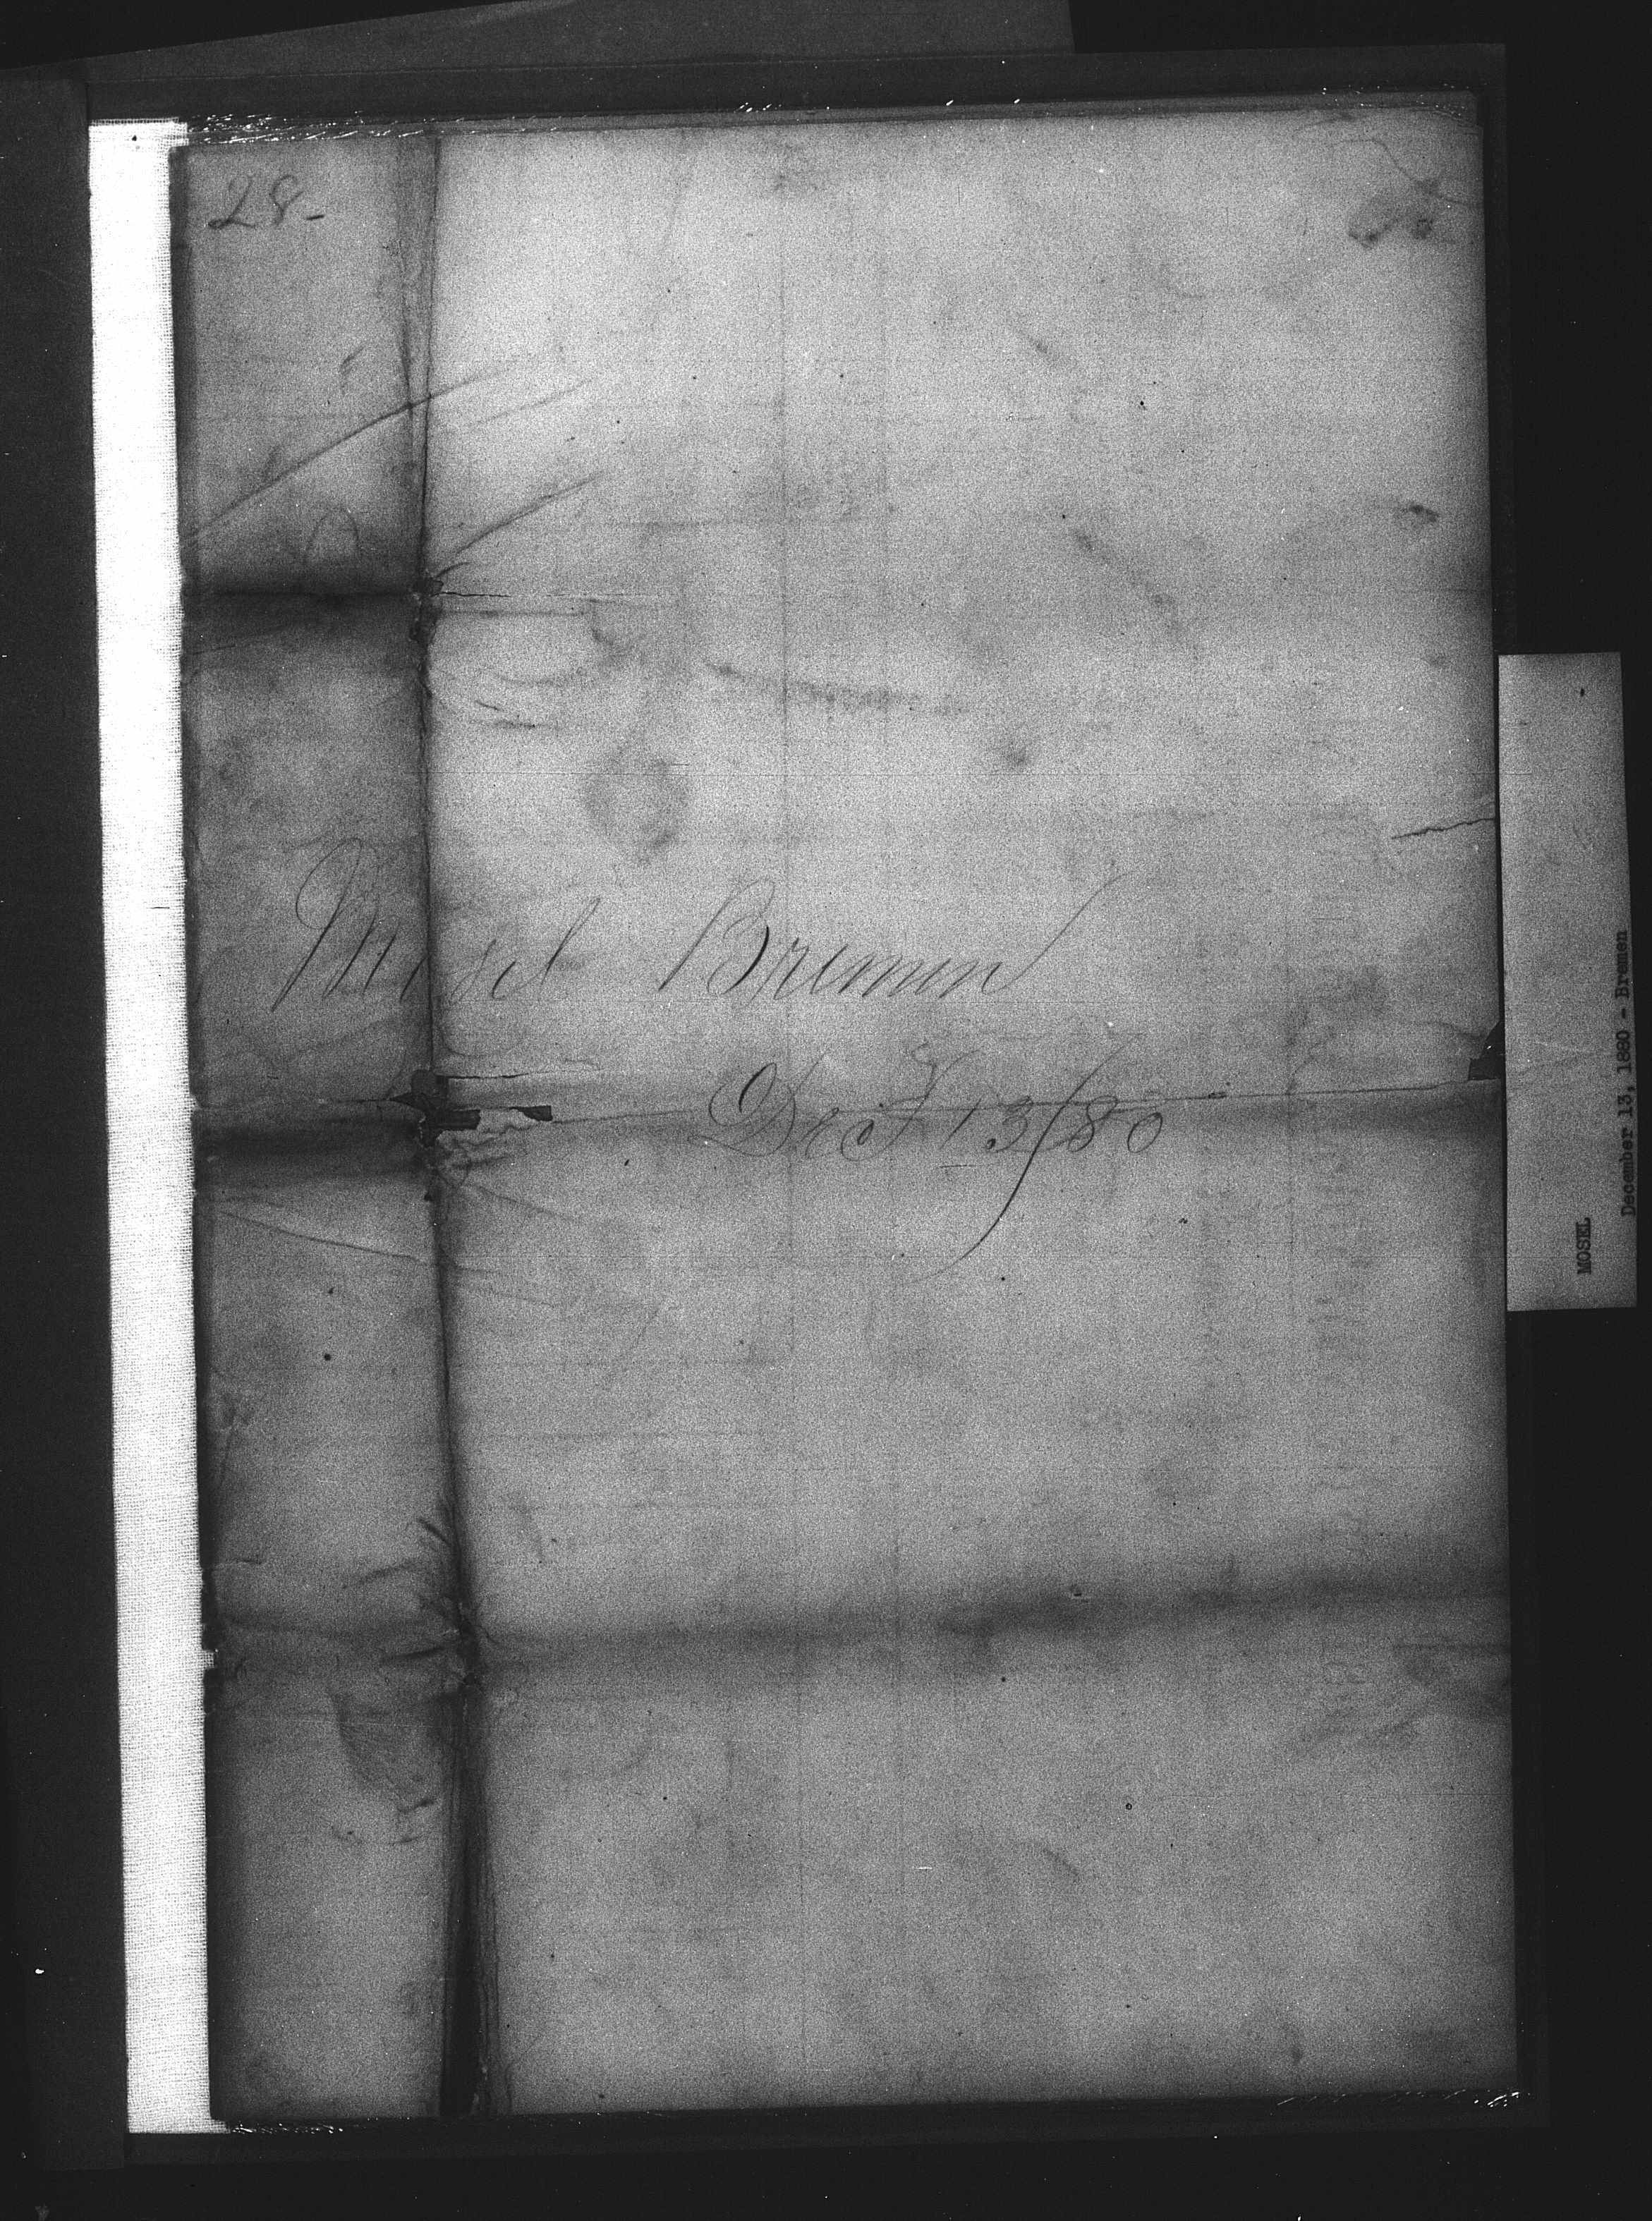 28-
Mosel Bremen
Dec 13/80
MOSEL
December 13, 1880 - Bremen